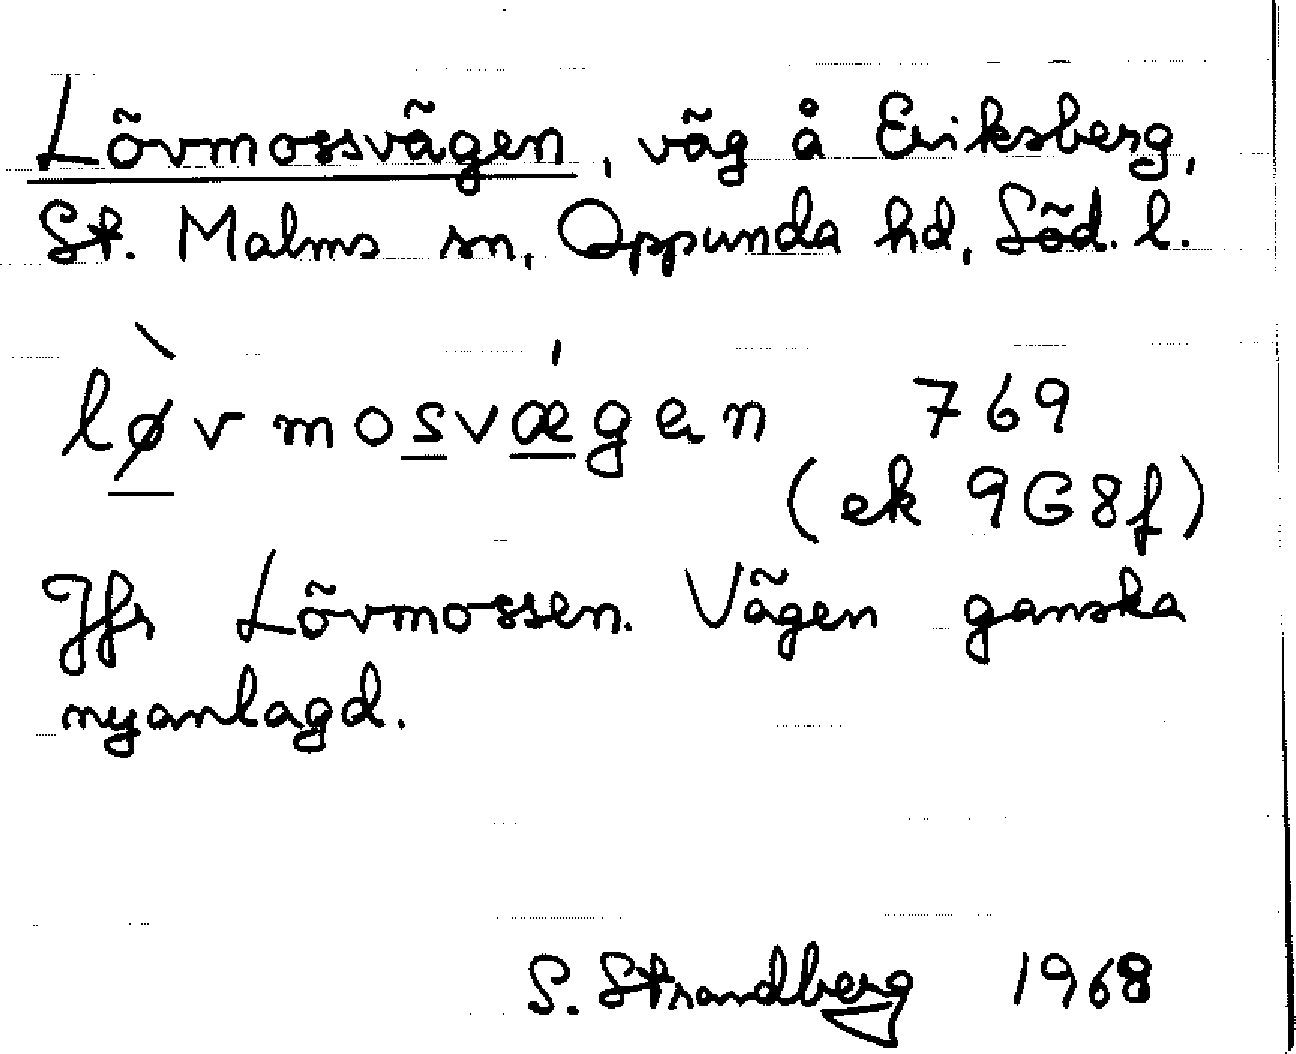 Lövmossvägen, väg å Eriksberg,
St. Malms sn, Oppunda hd, Söd. l.
lø̀vmosvǽgen 769
(ek 9G8f)
Jfr Lövmossen. Vägen ganska
nyanlagd.
S. Strandberg 1968